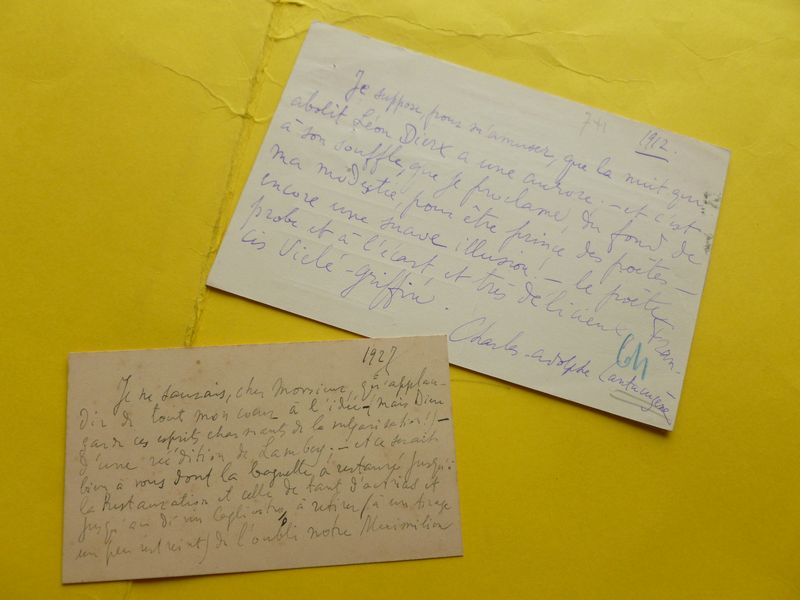 7+1
1912.
Je suppose, pour m'amuser, que la nuit qui
abolit Léon Dierx a une aurore. – et c'est
à son souffle, que je proclame, du fond de
ma modestie, pour être prince des poètes –
encore une suave illusion! – le poète
probe et à l'écart, et très délicieux Fran-
cis Vielé-Griffin.
Charles-Adolphe Cantacuzène
64
1927.
Je ne saurais, cher Monsieur, qu'applau-
dir de tout mon coeur à l'idée – mais Dieu
garde ces esprits charmants de la vulgarisation! –
d'une réédition de Lamboy. – et ce serait
bien à vous dont la baguette a restauré jusqu'à
la Restauration et celle de tant d'actrices et
jusqu'au divin Cagliostro, à retirer (à un tirage
un peu restreint) de l'oubli notre Maximilien